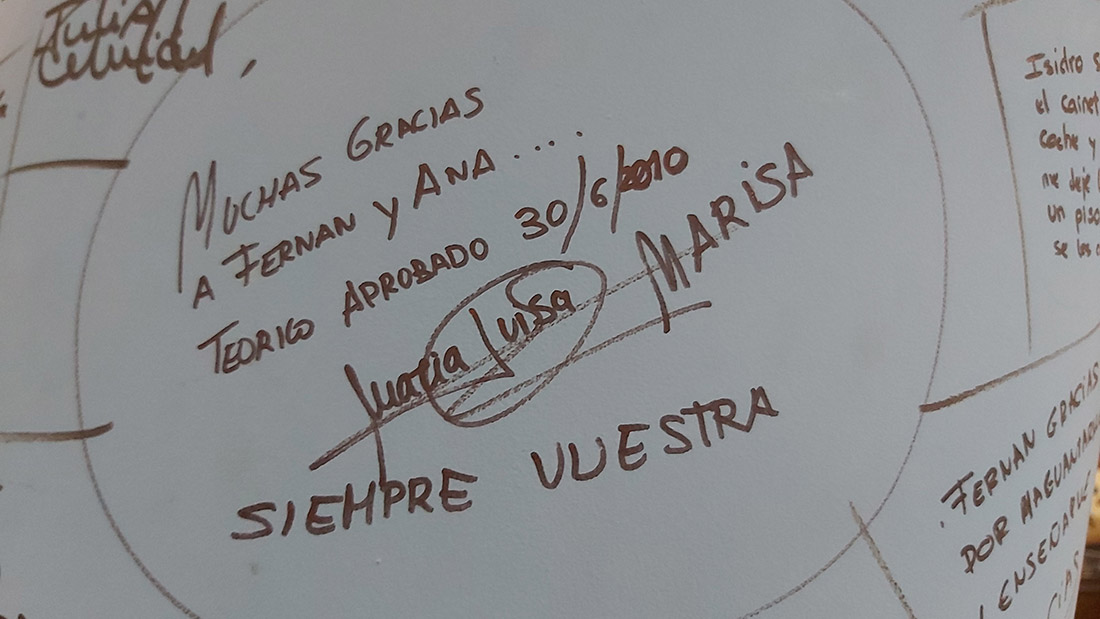 Julia
MUCHAS GRACIAS
A FERNAN Y ANA ....
TEORICO APROBADO 30/6/2010
Maria Luisa MARISA
SIEMPRE VUESTRA
Isidro s
el carnet
coche y
me deje
un piso
se les
. FERNAN GRACIAS
POR
ENSEÑARLE
CIAS